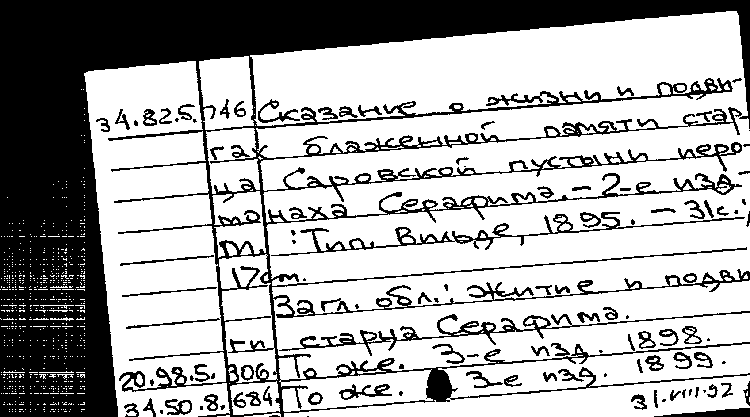 34.82.5.746. Сказание о жизни и подви-
гах блаженной памяти стар
ца Саровской пустыни иеро-
монаха Серафима. - 2-е изд. -
М. : Тип. Вильде, 1895. - 31с.;
17см.
Загл. обл.: Житие и подви
ги старца Серафима.
20.98.5.306. То же. 3-е изд. 1898.
34.50.8.684. То же. 3-е изд. 1899.
31.VIII.92